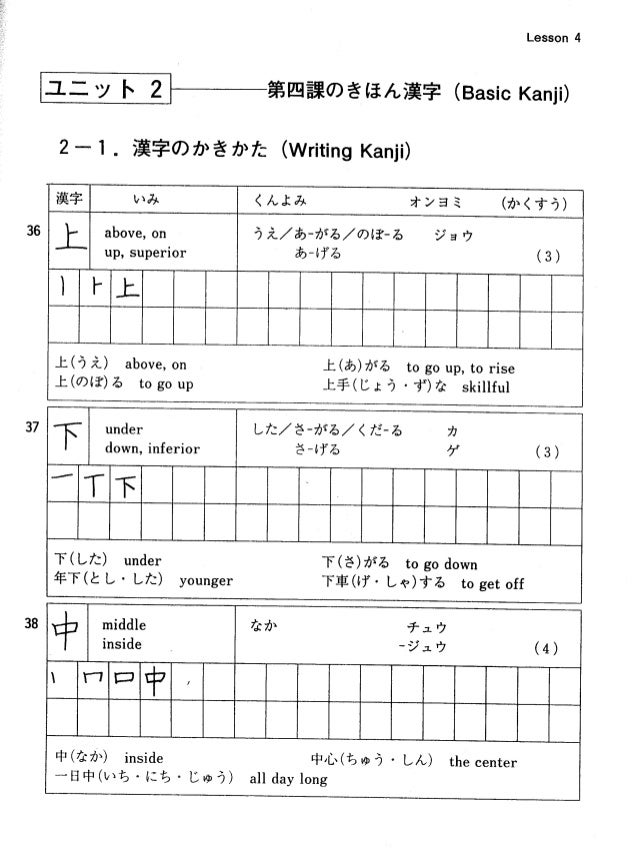 Lesson 4
ユニット 2 第四課のきほん漢字（Basic Kanji）
2－1．漢字のかきかた（Writing Kanji）
漢字 いみ くんよみ オンヨミ （かくすう）
36 上 above, on うえ／あ-がる／のぼ-る ジョウ
up, superior あ-げる （3）
丨 ⺊ 上
上（うえ） above, on 上（あ）がる to go up, to rise
上（のぼ）る to go up 上手（じょう・ず）な skillful
37 下 under した／さ-がる／くだ-る カ
down, inferior さ-げる ゲ （3）
一 丅 下
下（した） under 下（さ）がる to go down
年下（とし・した） younger 下車（げ・しゃ）する to get off
38 中 middle なか チュウ
inside -ジュウ （4）
丨 冖 口 中
中（なか） inside 中心（ちゅう・しん） the center
一日中（いち・にち・じゅう） all day long